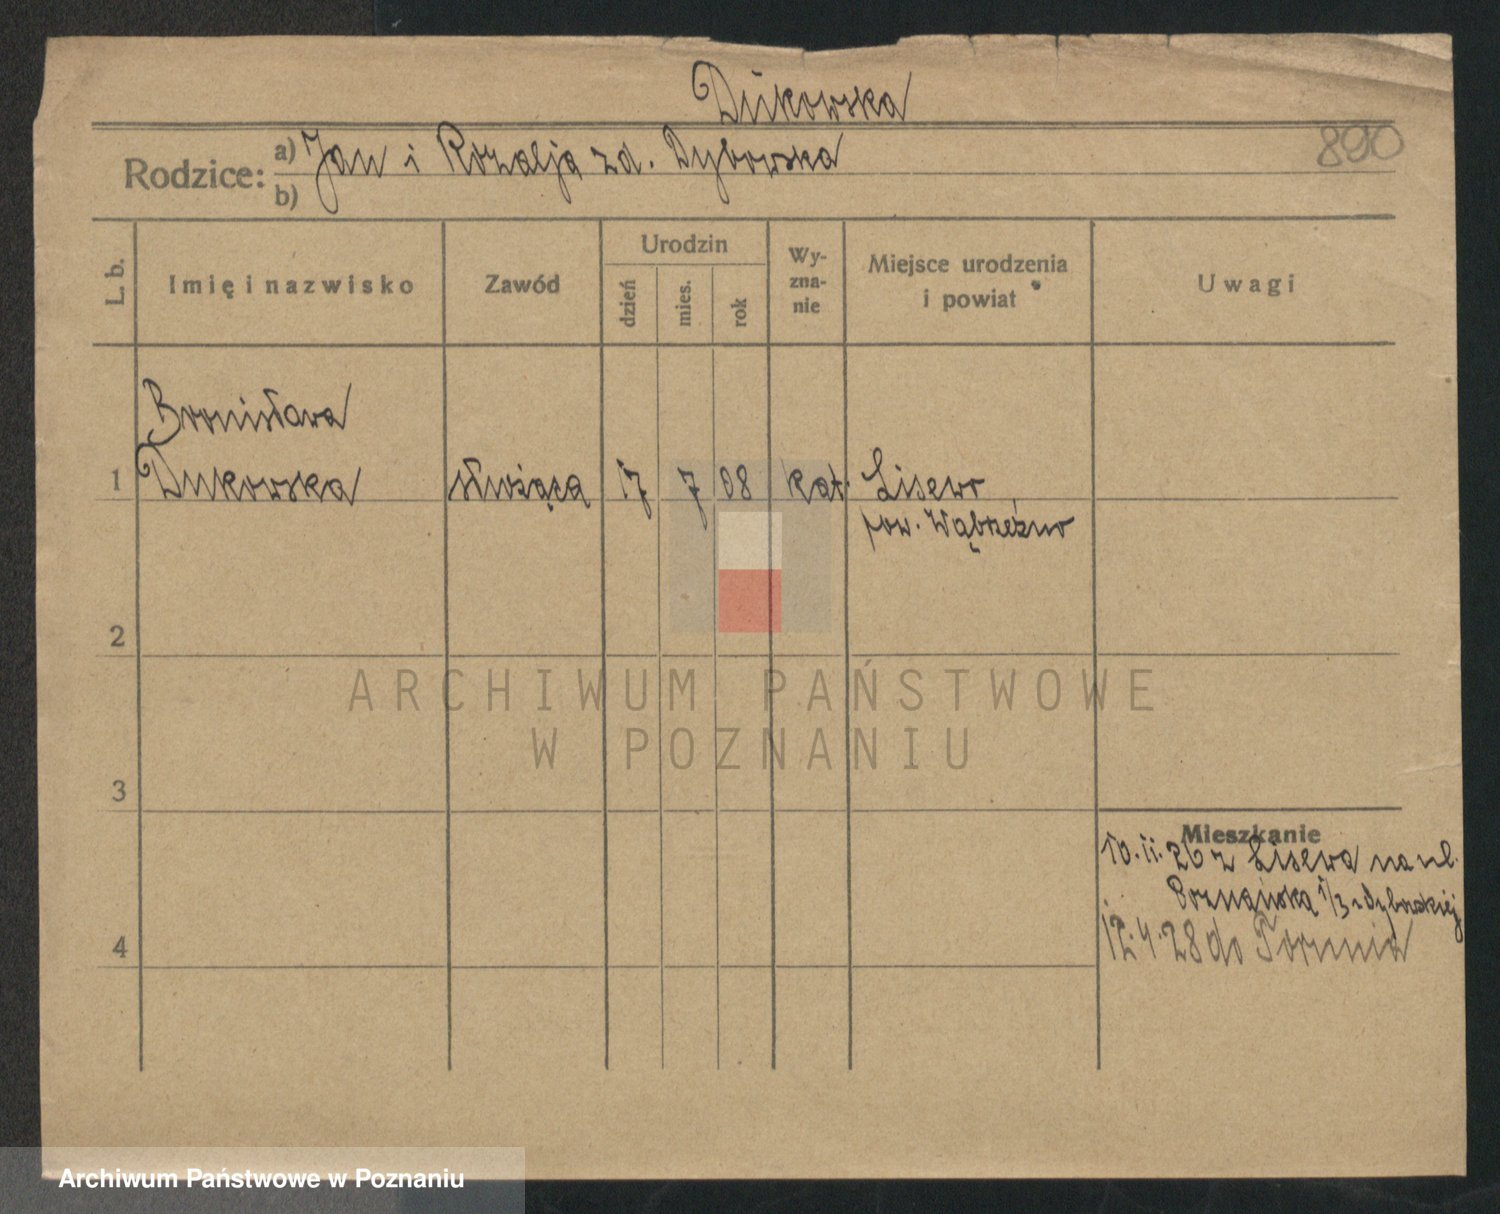 Dukowska
890
Rodzice: a) Jan i Rozalja zd. Dybowska
b)
L. b.
Imię i nazwisko
Zawód
Urodzin
dzień
mies.
rok
Wy-
zna-
nie
Miejsce urodzenia
i powiat
Uwagi
Bronisława
1 Dukowska służąca 17 7 08 kat. Lisewo
pow. Wąbrzeźno
2
3
4
Mieszkanie
10.11.26 z Lisewa na ul.
Poznańska 1/3 z Dybowskiej
12.4.28 do Torunia
ARCHIWUM PAŃSTWOWE
W POZNANIU
Archiwum Państwowe w Poznaniu